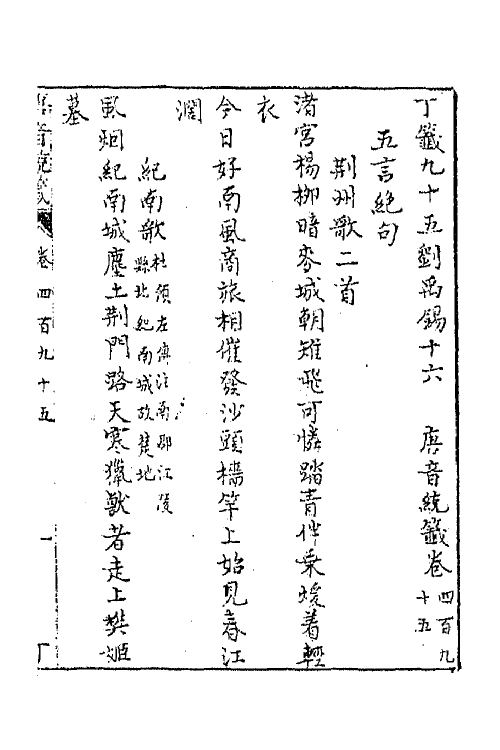 丁籤九十五劉禹錫十六　唐音統籤卷四百九十五
五言絕句
荆州歌二首
渚宮楊柳暗麥城朝雉飛可憐踏青伴乗煖着輕
衣
今日好南風商旅相催發沙頭檣竿上始見春江
濶
紀南歌杜預左傳注南郡江陵縣北紀南城故楚地
風烟紀南城塵土荆門路天寒獵獸者走上樊姬
墓
唐音統籤　卷四百九十五　一　丁